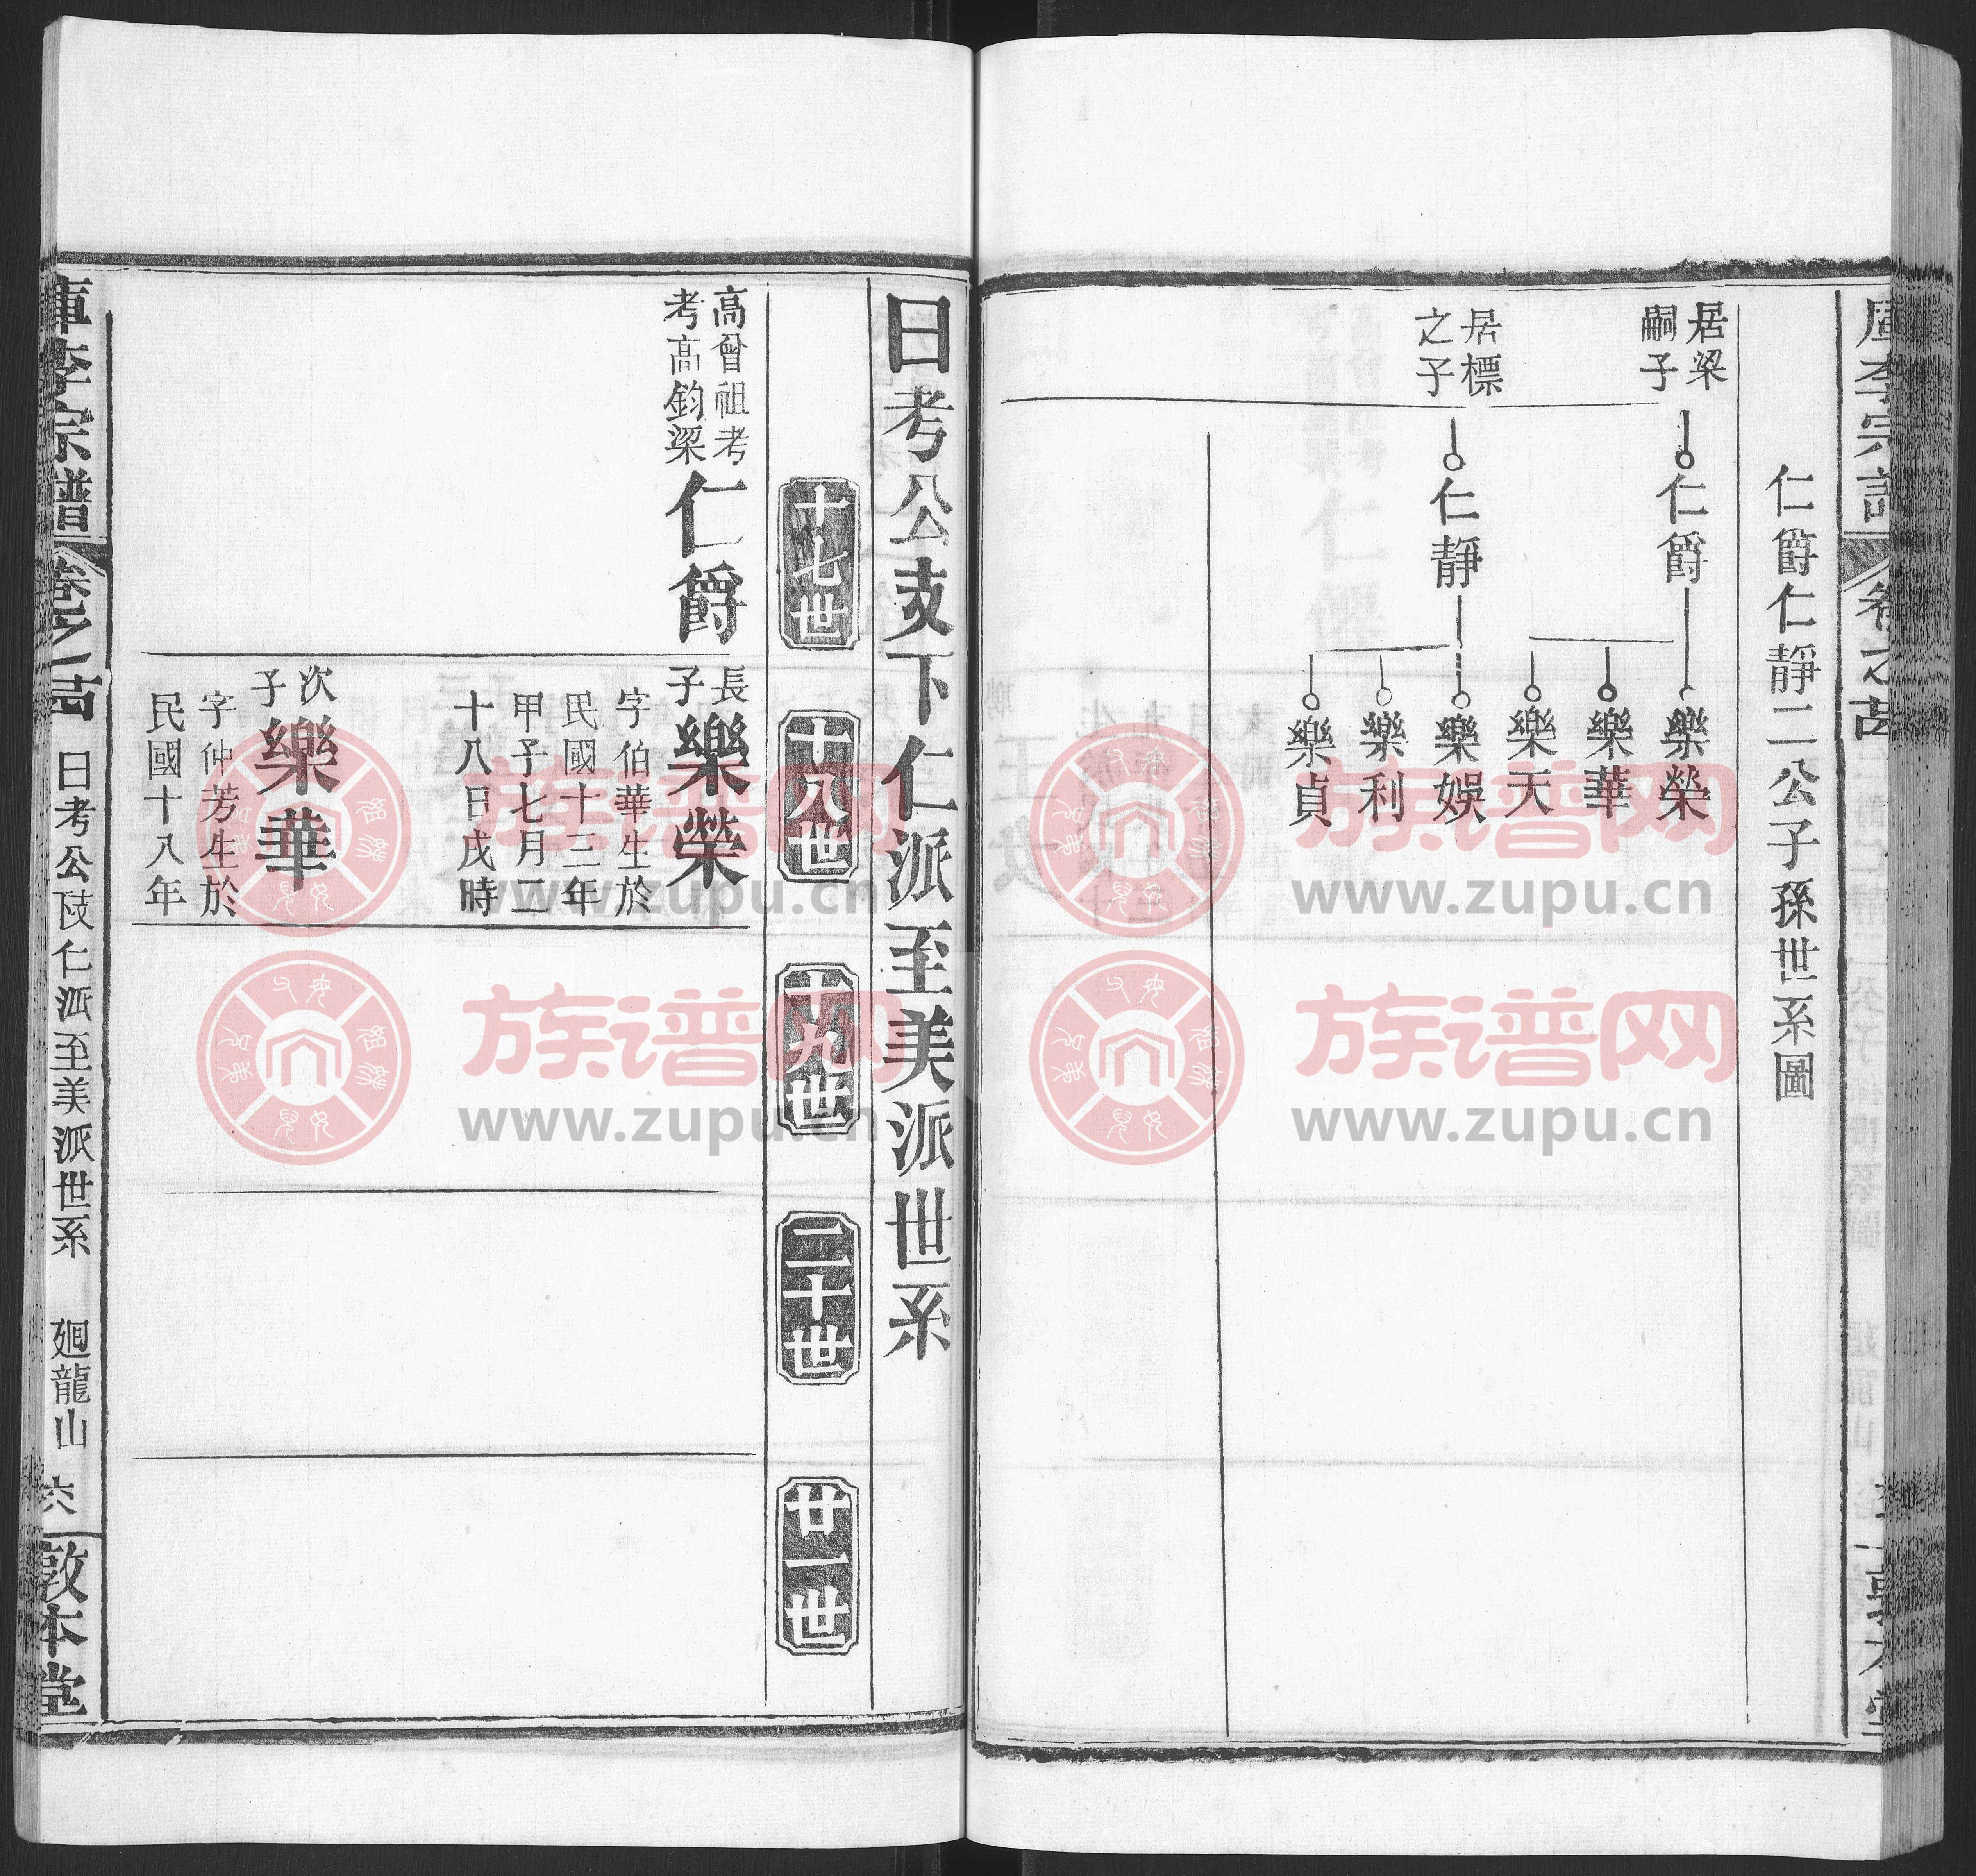 仁爵仁靜二公子孫世系圖
居梁
嗣子
仁爵
樂榮
樂華
樂天
居標
之子
仁靜
樂娛
樂利
樂貞
日考公支下仁派至美派世系
十七世
十八世
十九世
二十世
廿一世
高曾祖考
考高鈞梁
仁爵
長子
樂榮
字伯華生於
民國十三年
甲子七月二
十八日戌時
次子
樂華
字仲芳生於
民國十八年
李宗譜
卷之
日考公支仁派至美派世系
廻龍山
六
敦本堂
族谱网
www.zupu.cn
族谱网
www.zupu.cn
族谱网
www.zupu.cn
族谱网
www.zupu.cn